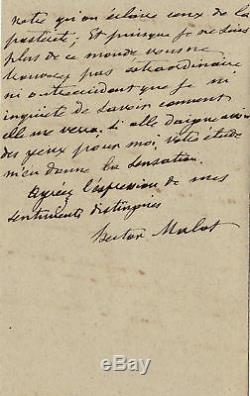 notre qu'on éclaire ceux de la
postérité; Et puisque je ne suis
plus de ce monde vous ne
trouverez pas extraordinaire
ni outrecuidant que je m'
inquiète de savoir comment
elle me verra, si elle daigne avoir
des yeux pour moi, votre étude
m'en donne la sensation.
Agréez l'expression de mes
sentiments distingués
Hector Malot
ebay